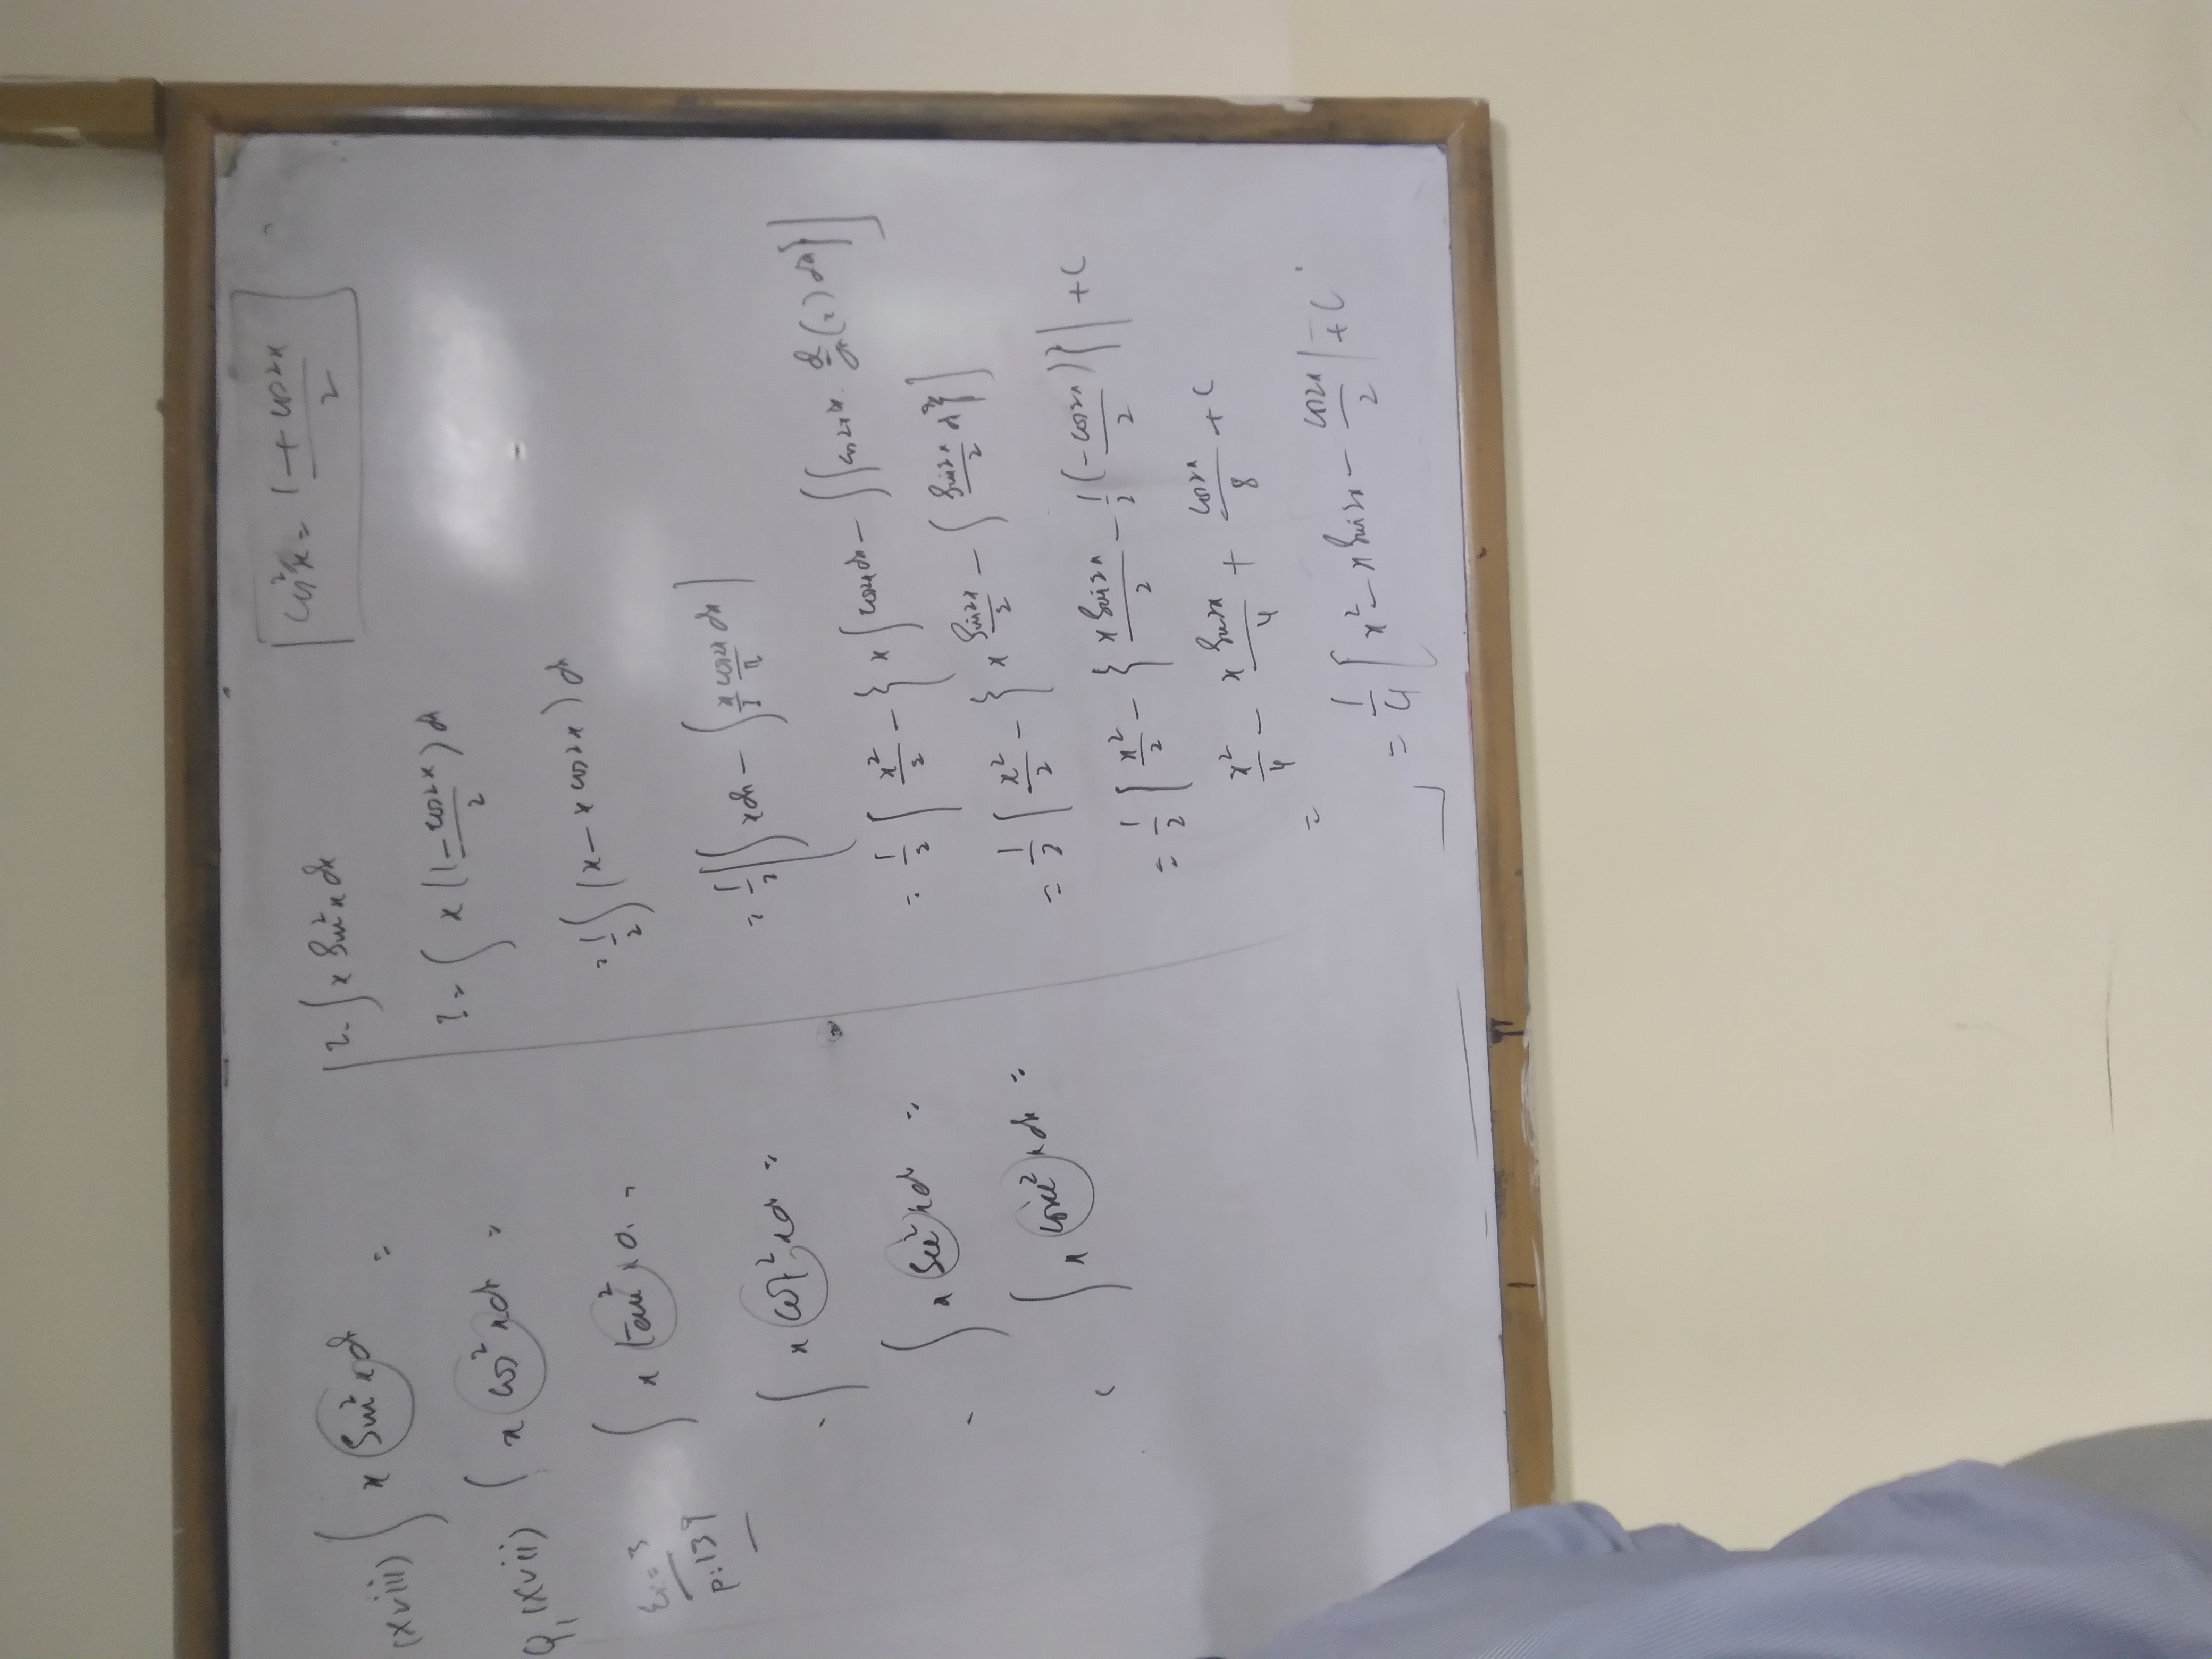 (xviii) ∫ x Sin²x d =
Q1 (xvii) ∫ x cos²x dx =
Ex=3
P:139
∫ x tan²x d =
∫ x cot²x d =
∫ x Sec²x d =
∫ x cosec²x dx =
I = ∫ x Sin²x dx
cos²x = (1 + cos2x)/2
I = ∫ x (1 - cos2x)/2 d
= 1/2 ∫ (x - x cos2x) d
= 1/2 [∫ x dx - ∫ x/I cos2x/II dx]
= 1/2 [x²/2 - {x ∫ cos2x dx - ∫∫ cos2x dx . d/dx (x) dx}]
= 1/2 [x²/2 - {x Sin2x/2 - ∫ Sin2x/2 dx}]
= 1/2 [x²/2 - {x Sin2x/2 - 1/2 (-cos2x/2)}] + C
= x²/4 - x Sin2x/4 + cos2x/8 + C
= 1/4 [x² - x Sin2x - cos2x/2] + C